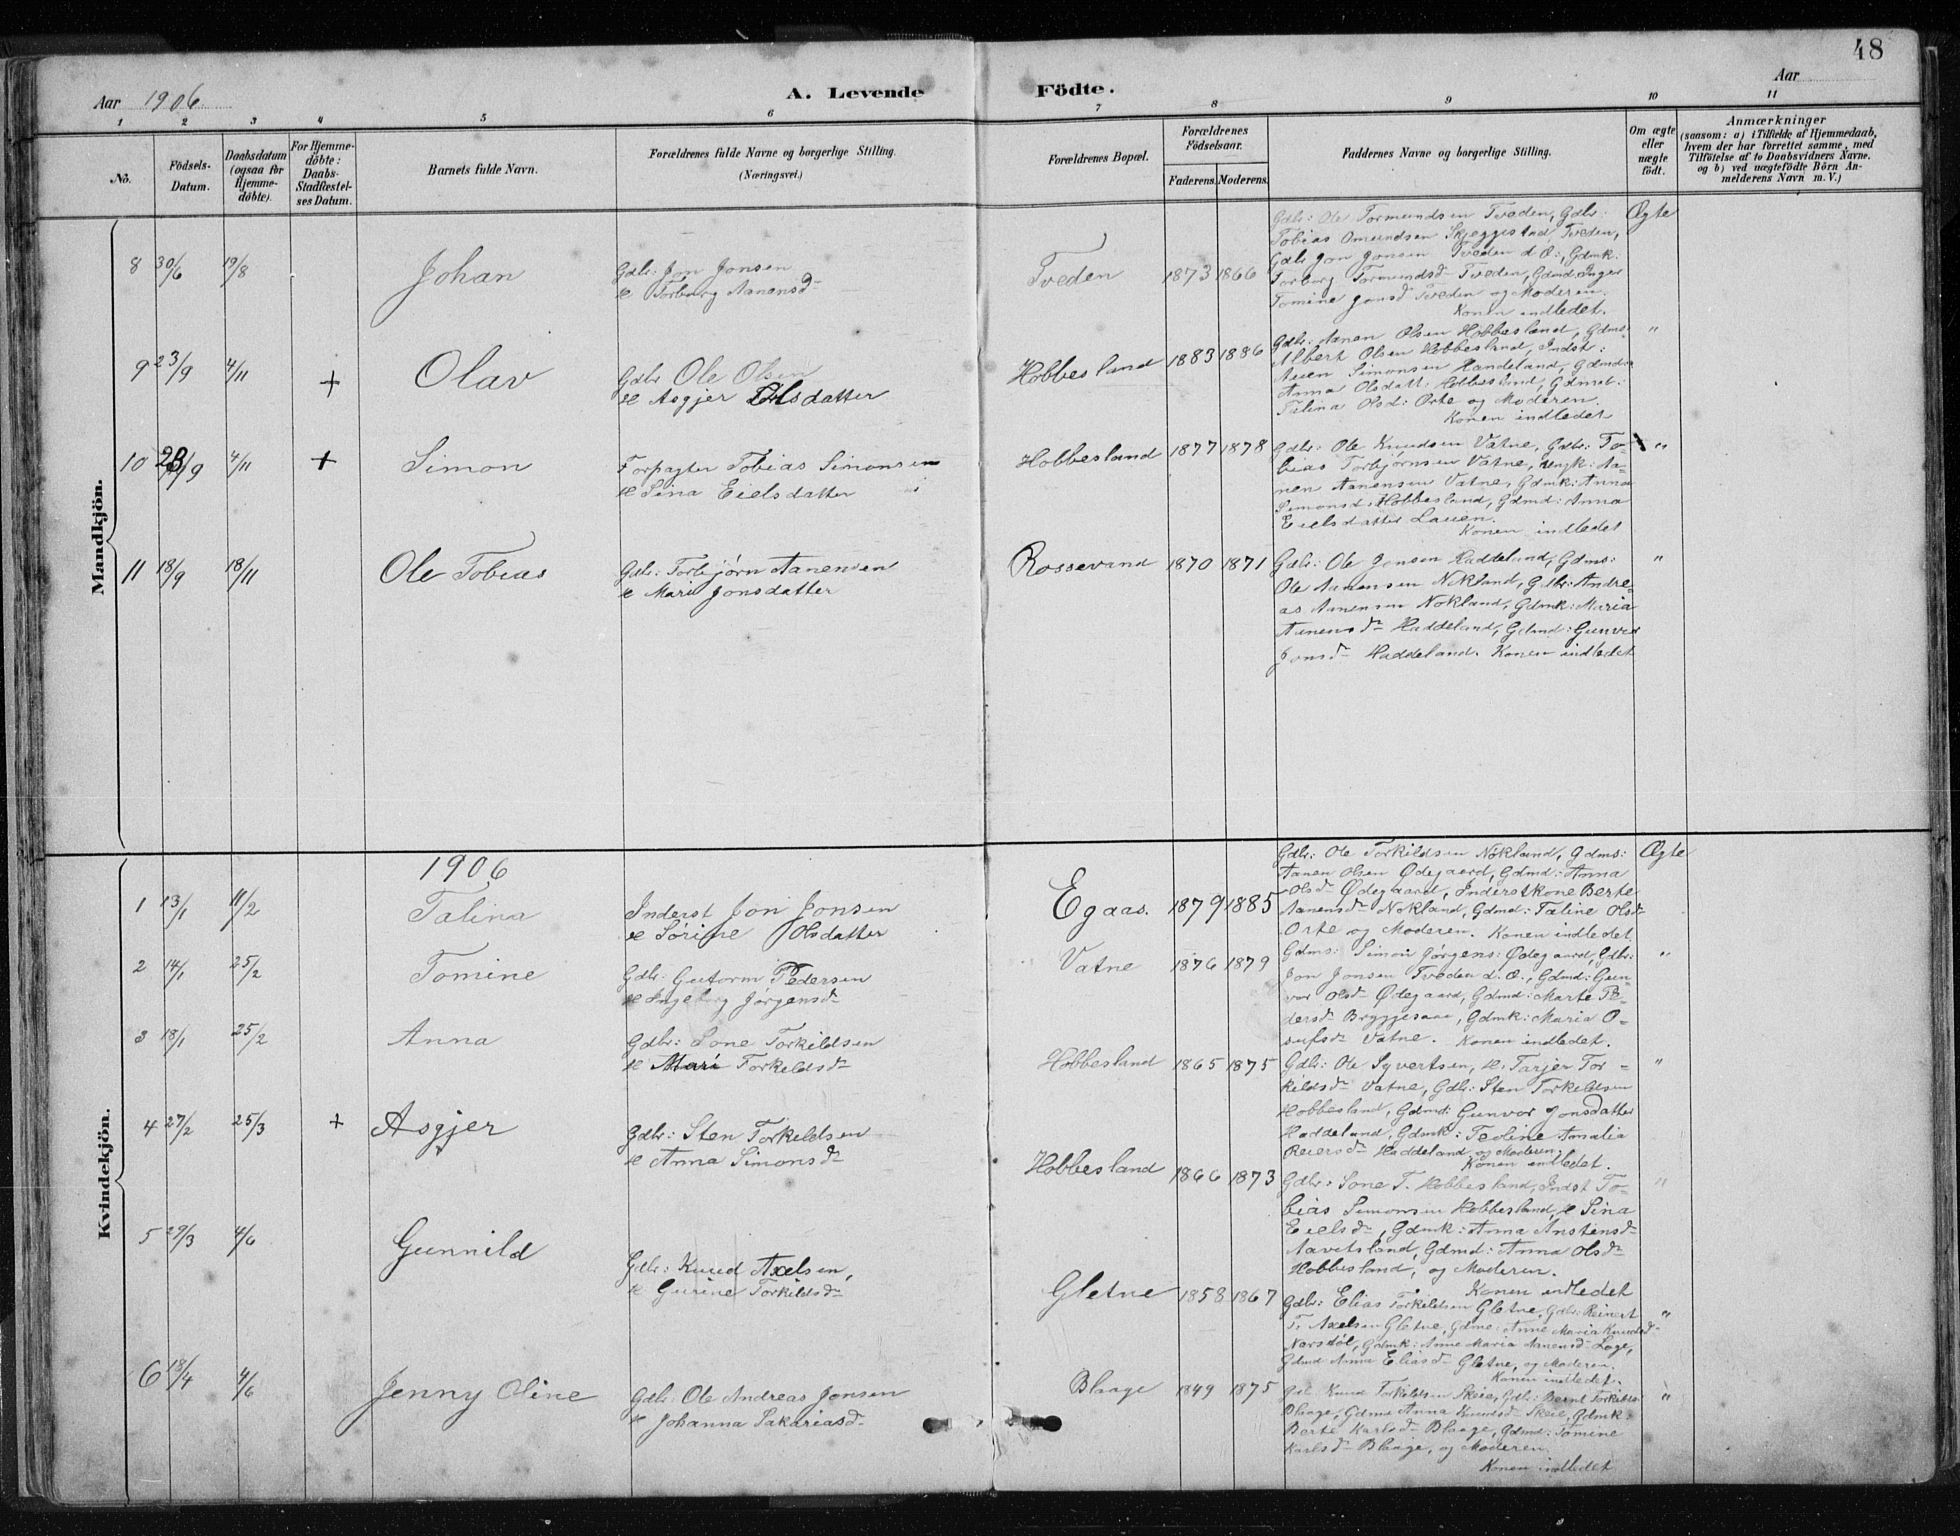 48
Aar 1906
A. Levende Födte.
Aar
1 2 3 4 5 6 7 8 9 10 11
No.
Födsels-
Datum.
Daabsdatum
(ogsaa for
Hjemme-
döbte).
For Hjemme-
döbte:
Daabs-
Stadfæstel-
ses Datum.
Barnets fulde Navn.
Forældrenes fulde Navne og borgerlige Stilling.
(Næringsvei.)
Forældrenes Bopæl.
Forældrenes
Födselsaar.
Faderens. Moderens.
Faddernes Navne og borgerlige Stilling.
Om ægte
eller
uægte
födt.
Anmærkninger
(saasom: a) i Tilfælde af Hjemmedaab,
hvem der har forrettet samme, med
Tilföielse af to Daabsvidners Navne.
og b) ved uægtefödte Börn An-
melderens Navn m. V.)
Mandkjön.
8 30/6 19/8 Johan
Gdbr: Jon Jonsen
& Torborg Aanensd
Tveden 1873 1866
Gdbr: Ole Tormundsen Tveden, Gdbr:
Tobias Omundsen Skjeggestad Tveden,
Gdbr Jon Jonsen Tveden d. Ø.; Gdmk:
Torborg Tormundsd Tveden, Gdmd Inger
Tomine Jonsd Tveden og Moderen.
Konen indledet.
Ægte
9 23/9 4/11 + Olav
Gdbr Ole Olsen
& Asgjer Olsdatter
Hobbesland 1883 1886
Gdbr: Aanen Olsen Hobbesland, Gdms:
Albert Olsen Hobbesland, Indst:
Aven Simonsen Handeland, Gdmds
Anna Olsdatt: Hobbesland, Gdmd:
Talina Olsd: Orte og Moderen.
Konen indledet
"
10 23/9 4/11 + Simon
Forpagter Tobias Simonsen
& Sina Eielsdatter
Hobbesland 1877 1878
Gdbr: Ole Knudsen Vatne, Gdbr: To-
bias Torbjørnsen Vatne, Ungk: Aa-
nen Aanensen Vatne, Gdmk: Anna
Simonsd: Hobbesland, Gdmd: Anna
Eielsdatter Lauen.
Konen indledet
"
11 18/9 18/11 Ole Tobias
Gdbr: Torbjørn Aanensen
& Mari Jonsdatter
Rossevand 1870 1871
Gdbr: Ole Jonsen Haddeland, Gdms:
Ole Aanensen Nøkland, Gdbr: Andre-
as Aanensen Nøkland, Gdmk: Maria
Aanensd Haddeland, Gdmd: Gunvor
Jonsd Haddeland. Konen indledet
"
Kvindekjön.
1906
1 13/1 11/2 Talina
Inderst Jon Jonsen
& Sørine Olsdatter
Egaas. 1879 1885
Gdbr: Ole Torkildsen Nøkland, Gdms:
Aanen Olsen Ødegaard, Gdmd: Anna
Olsd Ødegaard, Inderstkone Berte
Aanensd Nøkland, Gdmd: Taline Olsd
Orte og Moderen. Konen indledet
Ægte
2 14/1 25/2 Tomine
Gdbr: Gutorm Pedersen
& Ingeborg Jørgensd
Vatne 1876 1879
Gdms: Simon Jørgens: Ødegaard, Gdbr:
Jon Jonsen Tveden d. Ø., Gdmd: Gun-
vor Olsd Ødegaard, Gdmd: Marte Pe-
dersd Bryggesaae, Gdmk: Maria O-
sufsd Vatne. Konen indledet.
"
3 18/1 25/2 Anna
Gdbr: Sone Torkildsen
& Mari Torkildsd
Hobbesland 1865 1875
Gdbr: Ole Syvertsen, & Tarjer Tor-
kildsd Vatne, Gdbr: Sten Torkildsen
Hobbesland, Gdmd: Gunvor Jonsdatter
Haddeland, Gdmk: Teoline Amalia
Reiersd Haddeland og Moderen.
Konen indledet.
"
4 27/2 25/3 + Asgjer
Gdbr: Sten Torkildsen
& Anna Simonsd
Hobbesland 1866 1873
Gdbr: Sone T. Hobbesland, Indst To-
bias Simonsen Hobbesland, & Sina
Eielsd, Gdmk: Anna Anstensd
Aavitsland, Gdmd: Anna Olsd
Hobbesland, og Moderen.
Konen indledet
"
5 29/3 4/6 Gunnild
Gdbr: Knud Axelsen,
& Gurine Torkildsd
Gletne 1858 1867
Gdbr: Elias Torkildsen Gletne, Gdbr: Reinert
T. Axelsen Gletne, Gdme: Anne Maria Knudsd
Norsdöl, Gdmk: Anne Maria Aanensd Loge,
Gdmd Anna Eliasd Gletne, og Moderen.
Konen indledet.
"
6 18/4 4/6 Jenny Oline
Gdbr: Ole Andreas Jonsen
& Johanna Sakariasd
Blaage 1849 1875
Gdbr. Knud Torkildsen Skeie, Gdbr: Bernt Torkilds:
Blaage, Gdmd Anna Knudsd Skeie, Gdmk:
Berte Karlsd Blaage, Gdmd: Tomine
Karlsd Blaage, og Moderen.
Konen indledet
"